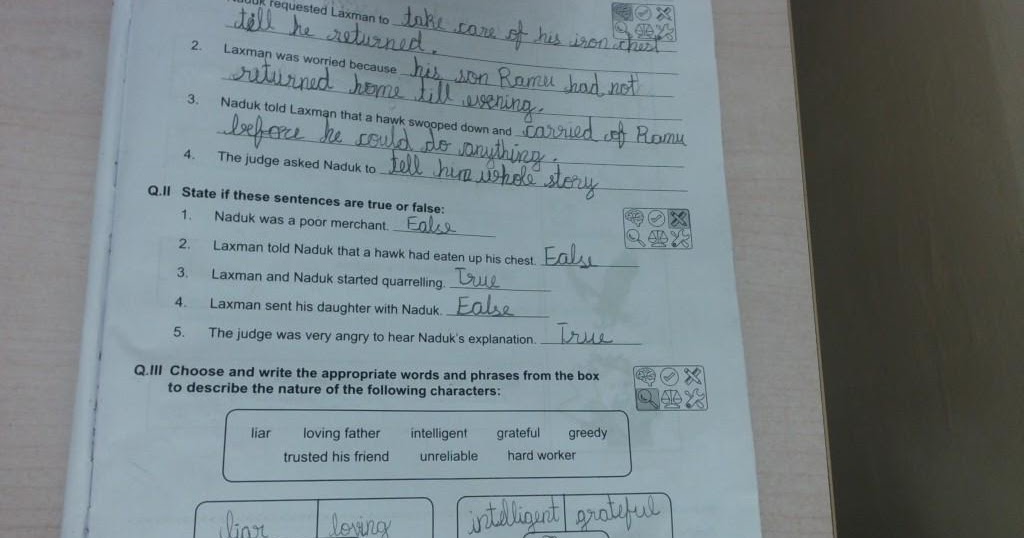 requested Laxman to take care of his iron chest
tell he returned.
2. Laxman was worried because his son Ramu had not
returned home till evening.
3. Naduk told Laxman that a hawk swooped down and carried of Ramu
before he could do anything.
4. The judge asked Naduk to tell him whole story
Q.II State if these sentences are true or false:
1. Naduk was a poor merchant. Ealse
2. Laxman told Naduk that a hawk had eaten up his chest. Ealse
3. Laxman and Naduk started quarrelling. True
4. Laxman sent his daughter with Naduk. Ealse
5. The judge was very angry to hear Naduk's explanation. True
Q.III Choose and write the appropriate words and phrases from the box
to describe the nature of the following characters:
liar loving father intelligent grateful greedy
trusted his friend unreliable hard worker
liar loving intelligent grateful